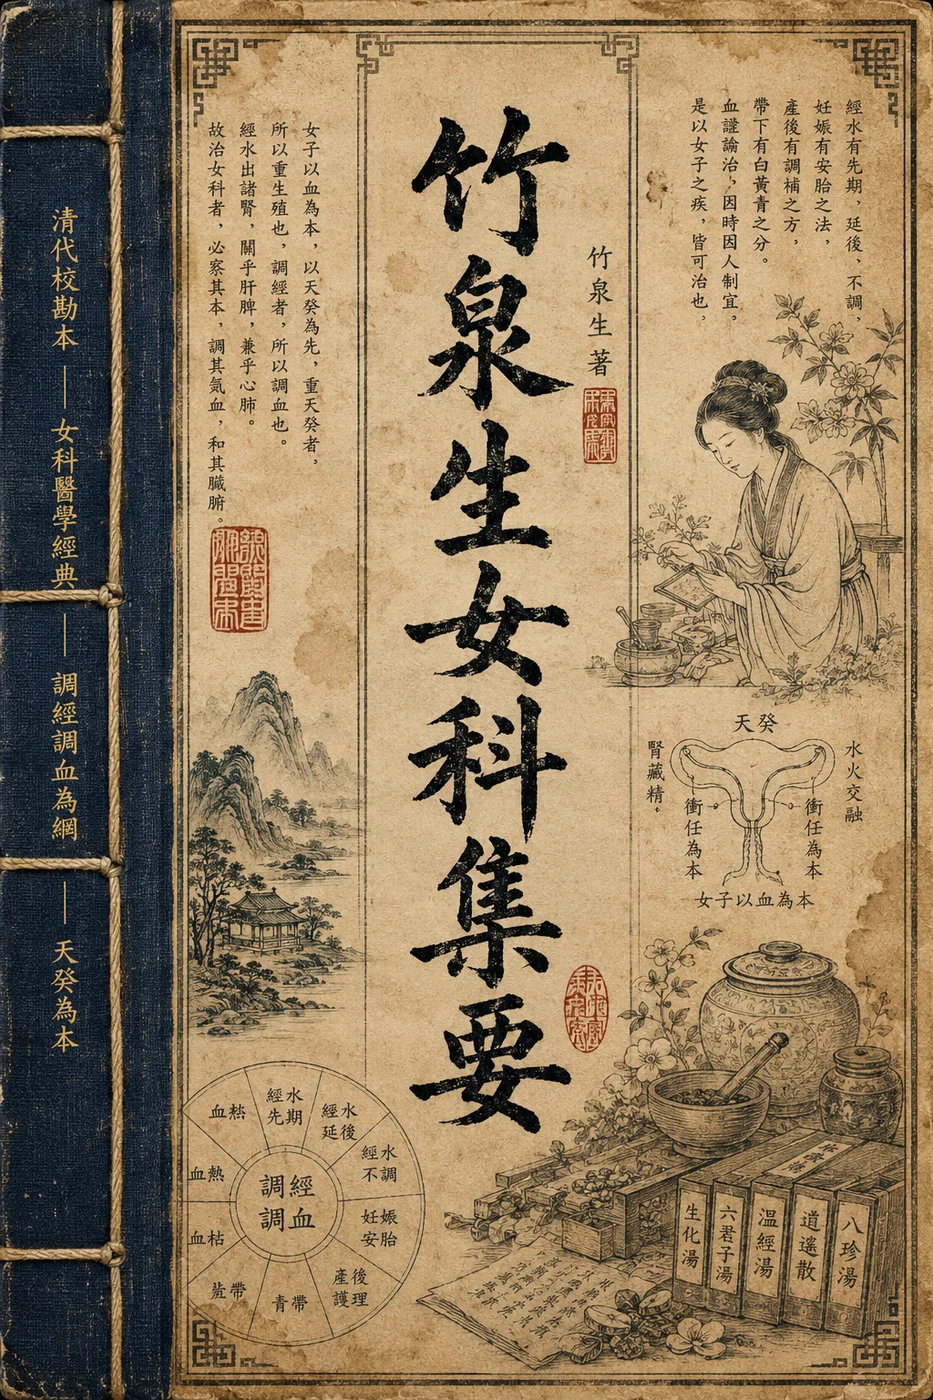 竹泉生女科集要
竹泉生著
經水有先期，延後、不調，
妊娠有安胎之法，
產後有調補之方，
帶下有白黃青之分。
血證論治，因時因人制宜。
是以女子之疾，皆可治也，
女子以血為本，以天癸為先，重天癸者，
所以重生殖也，調經者，所以調血也。
經水出諸腎，關乎肝脾，兼乎心肺。
故治女科者，必察其本，調其氣血，和其臟腑。
清代校勘本 — 女科醫學經典 — 調經調血為綱 — 天癸為本
天癸
水火交融
腎藏精
衝任為本
衝任為本
女子以血為本
調經
調血
經水
先期
經水
延後
經水
不調
妊娠
安胎
產後
護理
青帶
血枯
血熱
八珍湯
逍遙散
溫經湯
六君子湯
生化湯